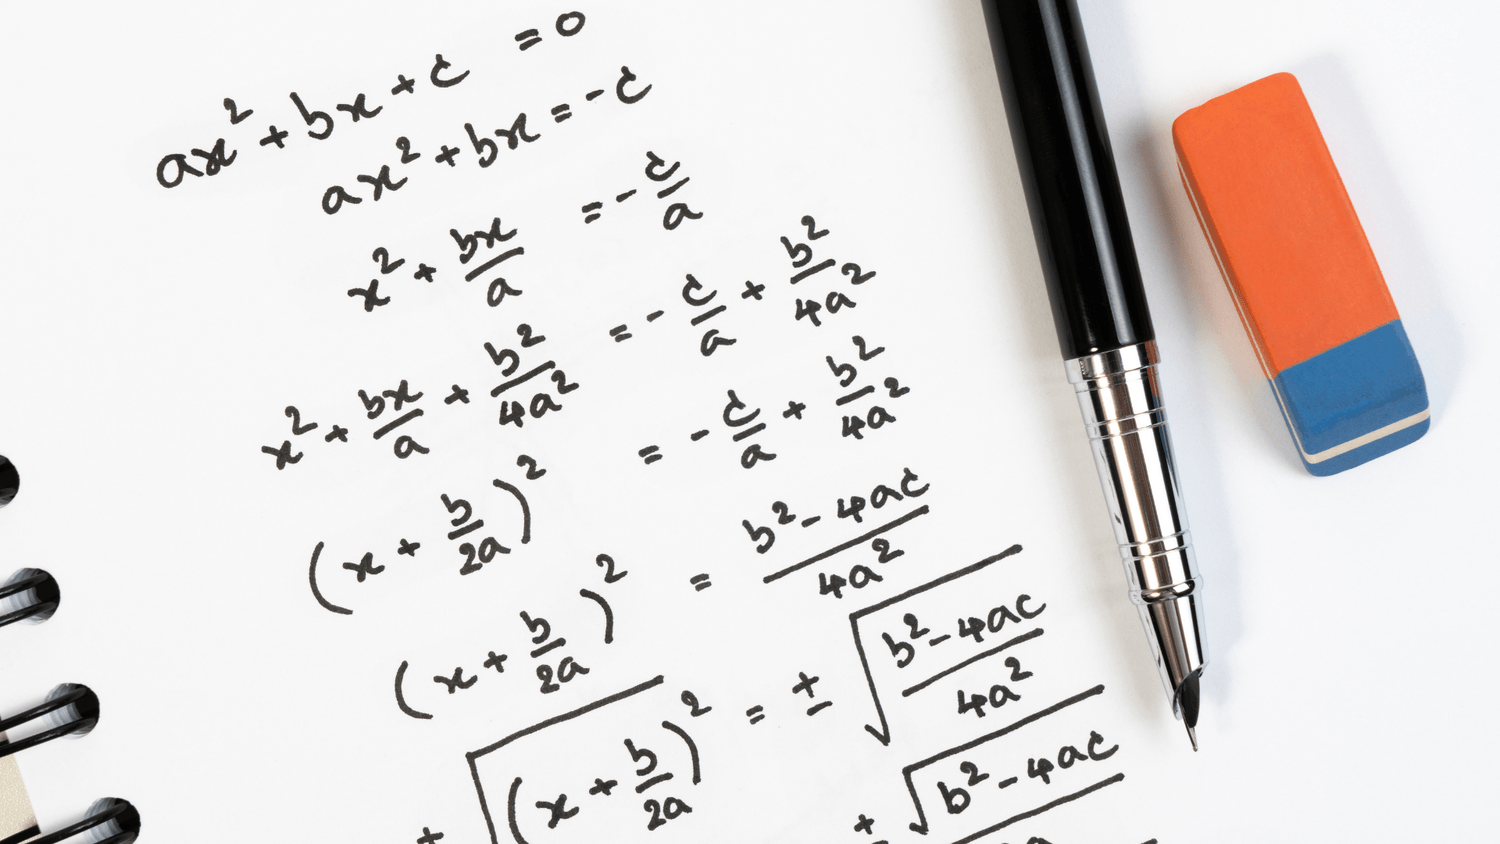 ax² + bx + c = 0
ax² + bx = -c
x² + bx/a = -c/a
x² + bx/a + b²/4a² = -c/a + b²/4a²
(x + b/2a)² = -c/a + b²/4a²
(x + b/2a)² = b² - 4ac/4a²
√(x + b/2a)² = ± √b² - 4ac/4a²
± √b² - 4ac